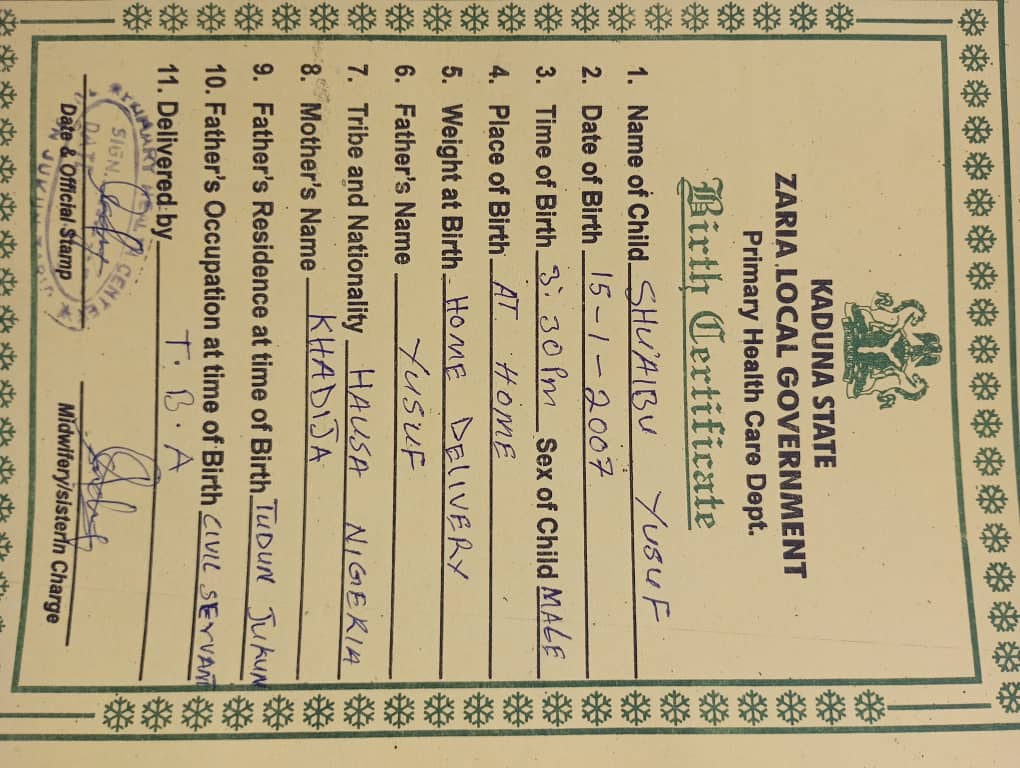 KADUNA STATE
ZARIA LOCAL GOVERNMENT
Primary Health Care Dept.
Birth Certificate
1. Name of Child SHUAIBU YUSUF
2. Date of Birth 15-1-2007
3. Time of Birth 3:30 Pm Sex of Child MALE
4. Place of Birth AT HOME
5. Weight at Birth HOME DELIVERY
6. Father's Name YUSUF
7. Tribe and Nationality HAUSA NIGERIA
8. Mother's Name KHADIJA
9. Father's Residence at time of Birth TUDUN JUKUN
10. Father's Occupation at time of Birth CIVIL SERVANT
11. Delivered by T.B.A
PRIMARY CENTE
SIGN.
Date & Official Stamp Midwifery/sisterIn Charge